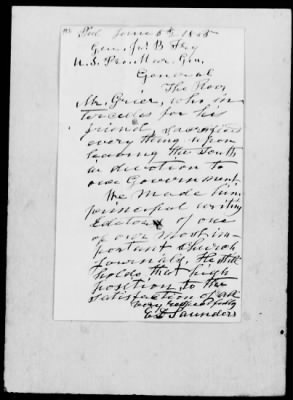 Phil June 5th 1865
Gen. Jas B Fry
U.S. Pro. Mar. Gen.
General
The Rev.
Mr. Grier, who in
tercedes for his
friend, sacrificed
everything upon
leaving the South
in devotion to
our Government
He made him
principal writing
Editor of one
of our most im
portant Church
Journals. He still
holds that high
position, to the
satisfaction of all
Very respectfully
E. D. Saunders